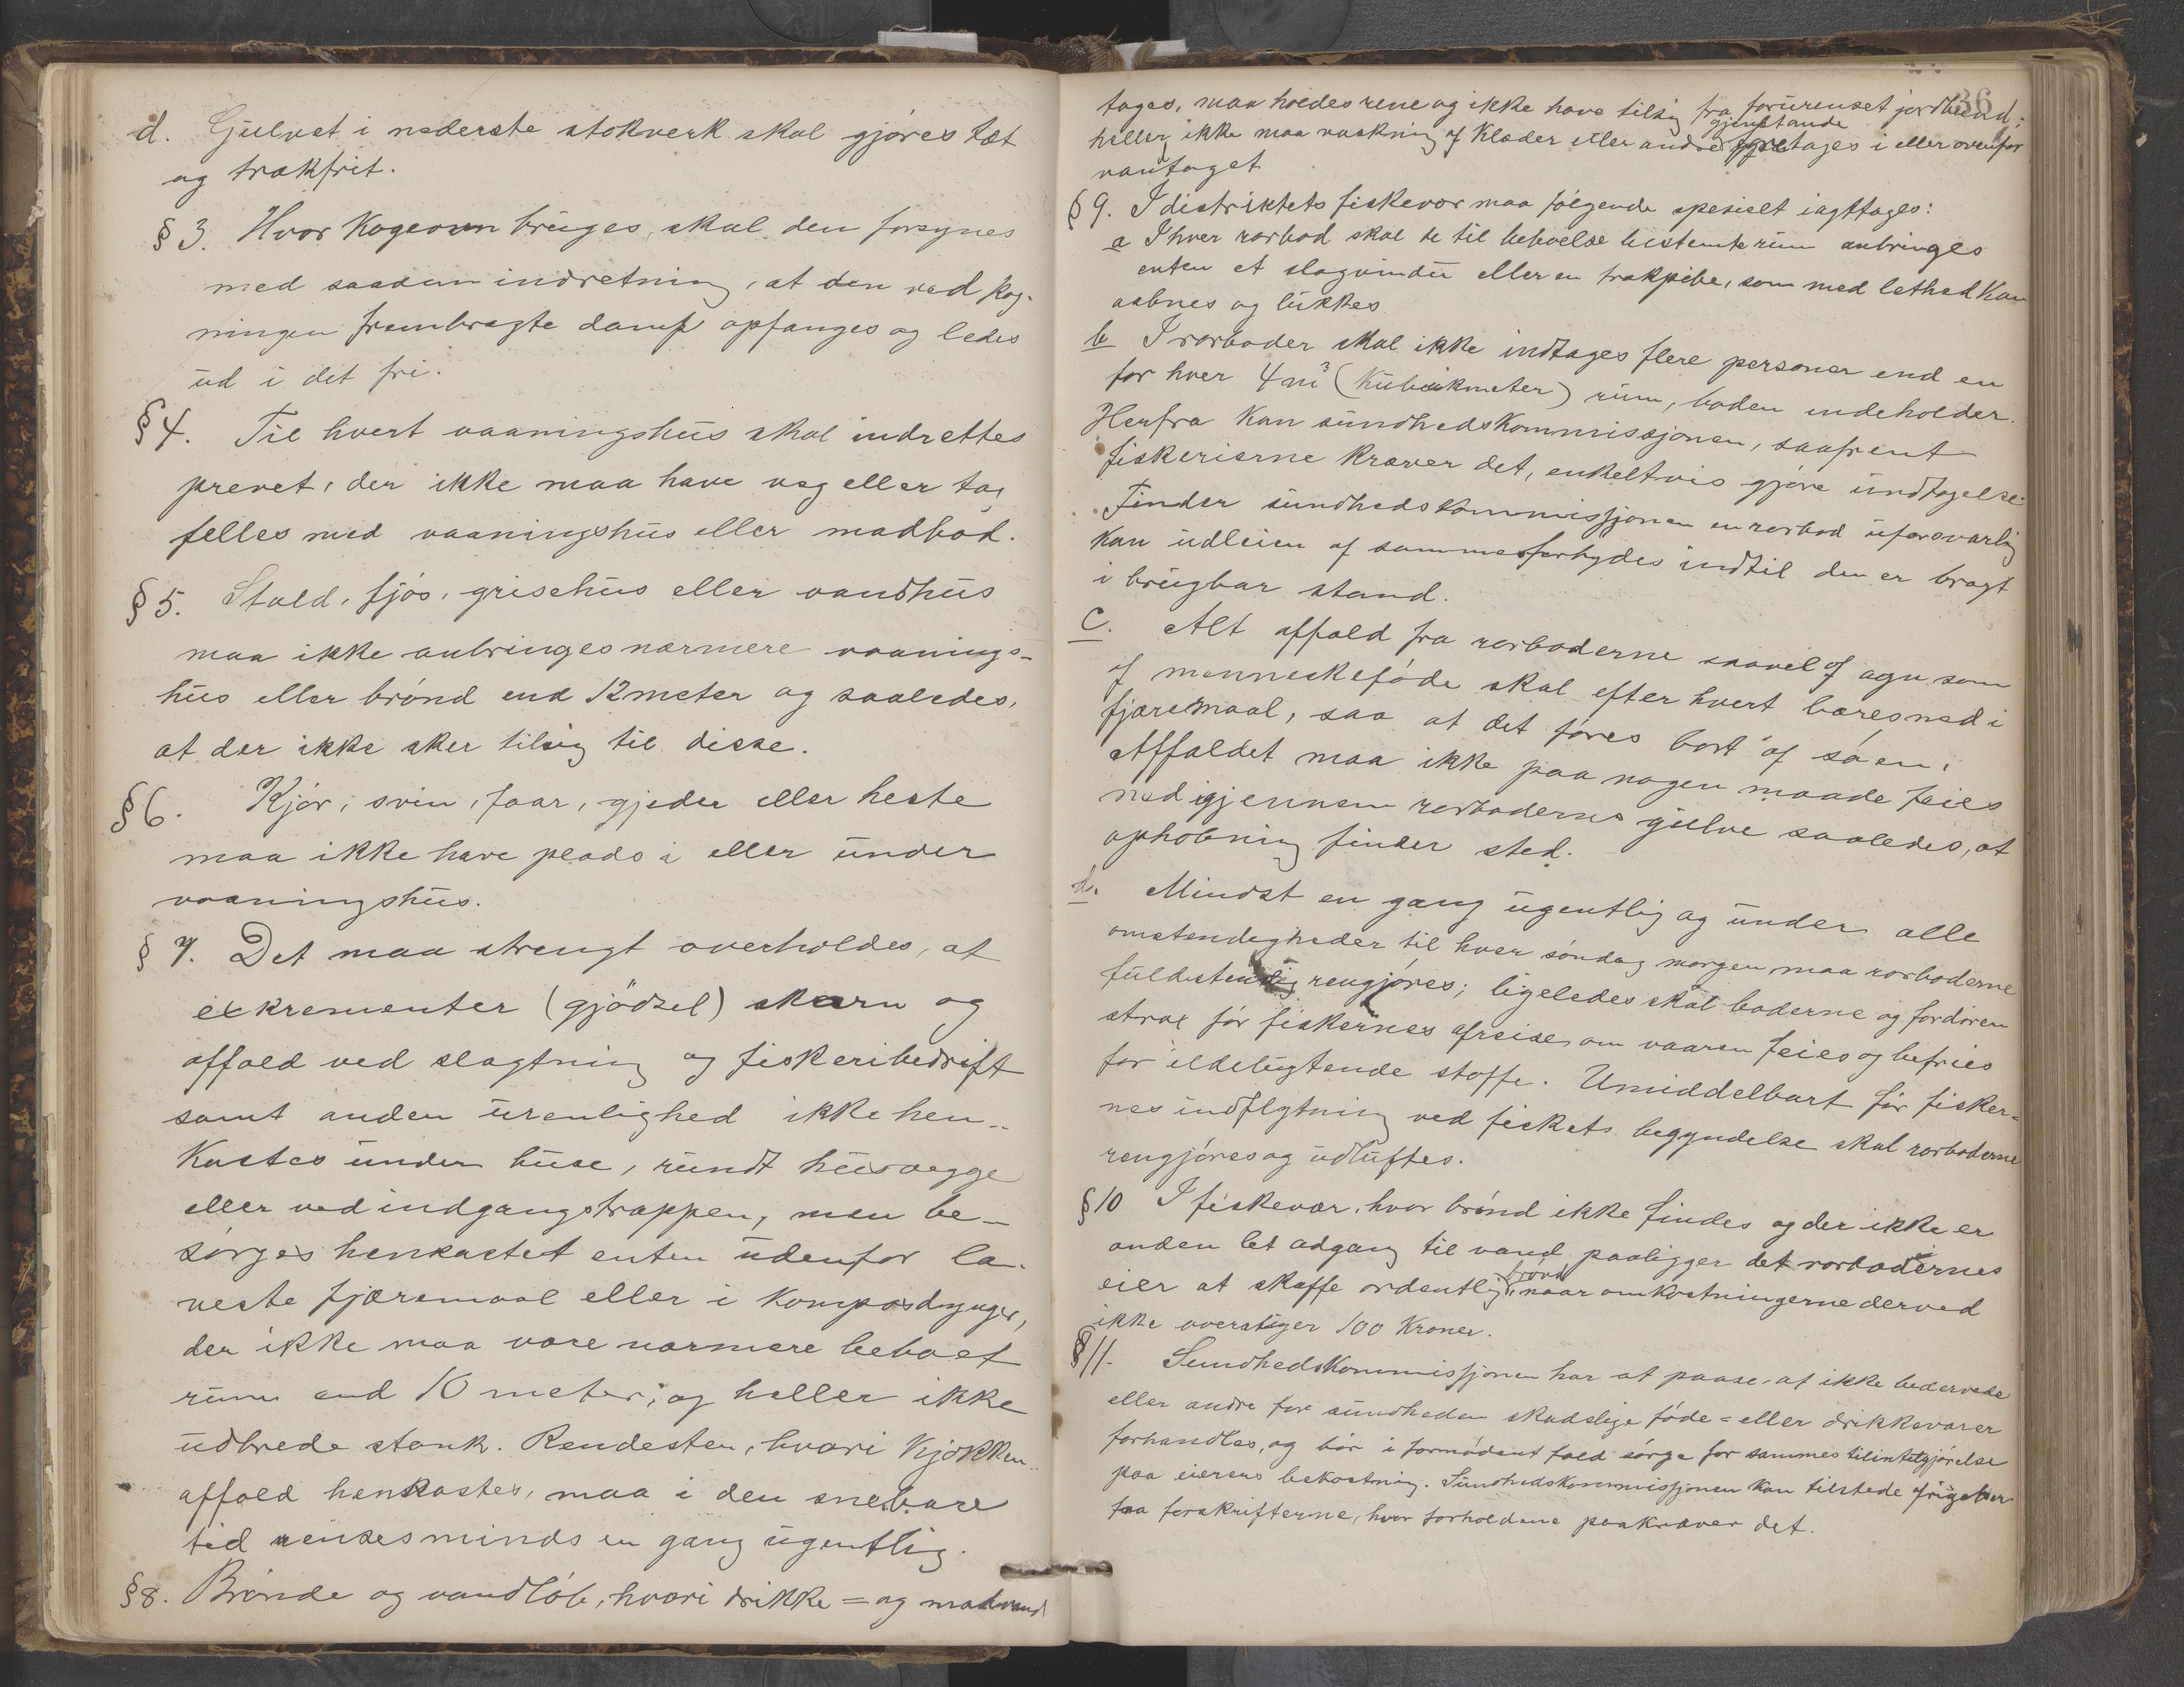 d. Gulvet i nederste stokverk skal gjøres tæt
og trækfrit.
§ 3. Hvor Kogeovn bruges, skal den forsynes
med saadan indretning, at den ved kog-
ningen frembragte damp opfanges og ledes
ud i det fri.
§ 4. Til hvert vaaningshus skal indrettes
prevet, der ikke maa have væg eller tag
felles med vaaningshus eller madbod.
§ 5. Stald, fjøs, grisehus eller vandhus
maa ikke anbringes nærmere vaanings-
hus eller brønd end 12 meter og saaledes,
at der ikke sker tilsig til disse.
§ 6. Kjør, svin, faar, gjeder eller heste
maa ikke have plads i eller under
vaaningshus.
§ 7. Det maa strengt overholdes, at
exkrementer (gjødsel) skarn og
affald ved slagtning og fiskeribedrift
samt anden urenlighed ikke hen-
kastes under huse, rundt husvegge
eller ved indgangstrappen, men be-
sørges henkastet enten udenfor la-
veste fjæremaal eller i Komposdynger,
der ikke maa være nærmere beboet
rum end 10 meter; og heller ikke
udbrede stank. Rendesten, hvori kjøkken-
affald henkastes, maa i den snebare
tid renses minds en gang ugentlig.
§ 8. Brønde og vandløb, hvori drikke= og madvand
36
tages, maa holdes rene og ikke have tilsig fra forurenset jordbund;
gjenstande
heller ikke maa vaskning af Klæder eller andre foretages i eller ovenfor
vantaget
§ 9. I distriktets fiskevær maa følgende spesielt iagttages:
a I hver rorbod skal de til beboelse bestemte rum anbringes
enten et slagvindu eller en trækpibe, som med lethed kan
aabnes og lukkes
b I rorboder skal ikke indtages flere personer end en
for hver 4 m³ (Kubikmeter) rum, boden indeholder.
Herfra kan sundhedskommissjonen, saafremt
fiskerierne kræver det, enkeltvis gjøre undtagelse.
Finder sundhedskommissjonen en rorbod uforsvarlig
kan udleien af samme forbydes indtil den er bragt
i brugbar stand.
c. Alt affald fra rorboderne saavel af agn som
af menneskeføde skal efter hvert bæres ned i
fjæremaal, saa at det føres bort af søen.
Affaldet maa ikke paa nogen maade feies
ned igjennem rorbodernes gulve saaledes, at
ophobning finder sted.
d. Mindst en gang ugentlig og under alle
omstendigheder til hver søndag morgen maa rorboderne
fuldstendig rengjøres; ligeledes skal boderne og fordøren
strax før fiskernes afreise om vaaren feies og befries
for ildelugtende stoffe. Umiddelbart før fisker-
nes indflytning ved fiskets begyndelse skal rorboderne
rengjøres og udluftes.
§ 10 I fiskevær, hvor brønd ikke findes og der ikke er
anden let adgang til vand paaligger det rorbodernes
brønd
eier at skaffe ordentlig, naar omkostningerne derved
ikke overstiger 100 Kroner.
§ 11. Sundhedskommissjonen har at paase, at ikke bedervede
eller andre for sundheden skadelige føde= eller drikkevarer
forhandles, og bør i fornødent fald sørge for sammes tilintetgjørelse
paa eierens bekostning. Sundhedskommissjonen kan tilstede afvigelser
fra forskrifterne, hvor forholdene paakræver det.